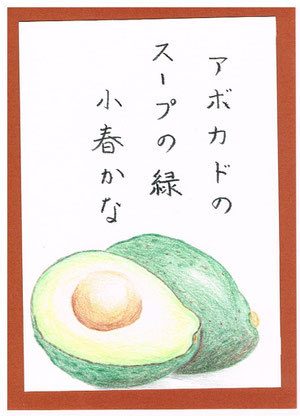 アボカドの
スープの緑
小春かな